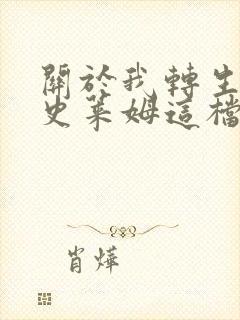 關於我轉生
史萊姆這檔
肖燁